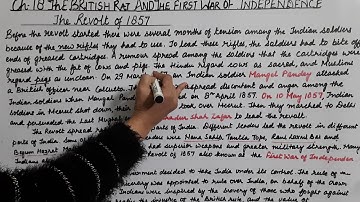 Ch:18 THE BRITISH RAJ AND THE FIRST WAR OF INDEPENDENCE
The Revolt of 1857
Before the Revolt started there were several months of tension among the Indian soldiers
because of the new rifles they had to use. To load these rifles, the soldiers had to bite off
ends of greased cartridges. A rumour spread among the soldiers that the cartridges were
greased with the fat of cows and pigs. The Hindu regard cows as sacred, and Muslims
regard pigs as unclean. On 29 March an Indian soldier Mangal Pandey attacked
a British officer near Calcutta. This spread discontent and anger among the
Indian soldiers when Mangal Pandey on 8th April 1857. On 10 May 1857, Indian
soldiers in Meerut shot down their took over Meerut. Then they marched to Delhi
and persuaded the last Mughal Bahadur Shah Zafar to lead the revolt.
The Revolt spread parts of India. Different leaders led the revolt in different
parts of India. Some were Nana Saheb, Tantia Tope, Rani Laxmi Bai and
Begum Hazrat Mahal had superior weapons and greater military strength. Many
Indians Revolt of 1857 also known as the First War of Independence
ernment decided to take India under its control. The rule of
iceroy was appointed to rule over India, on behalf of the crown
Indians were inspired by the bravery of those who fought against
of the British rule, and the value of